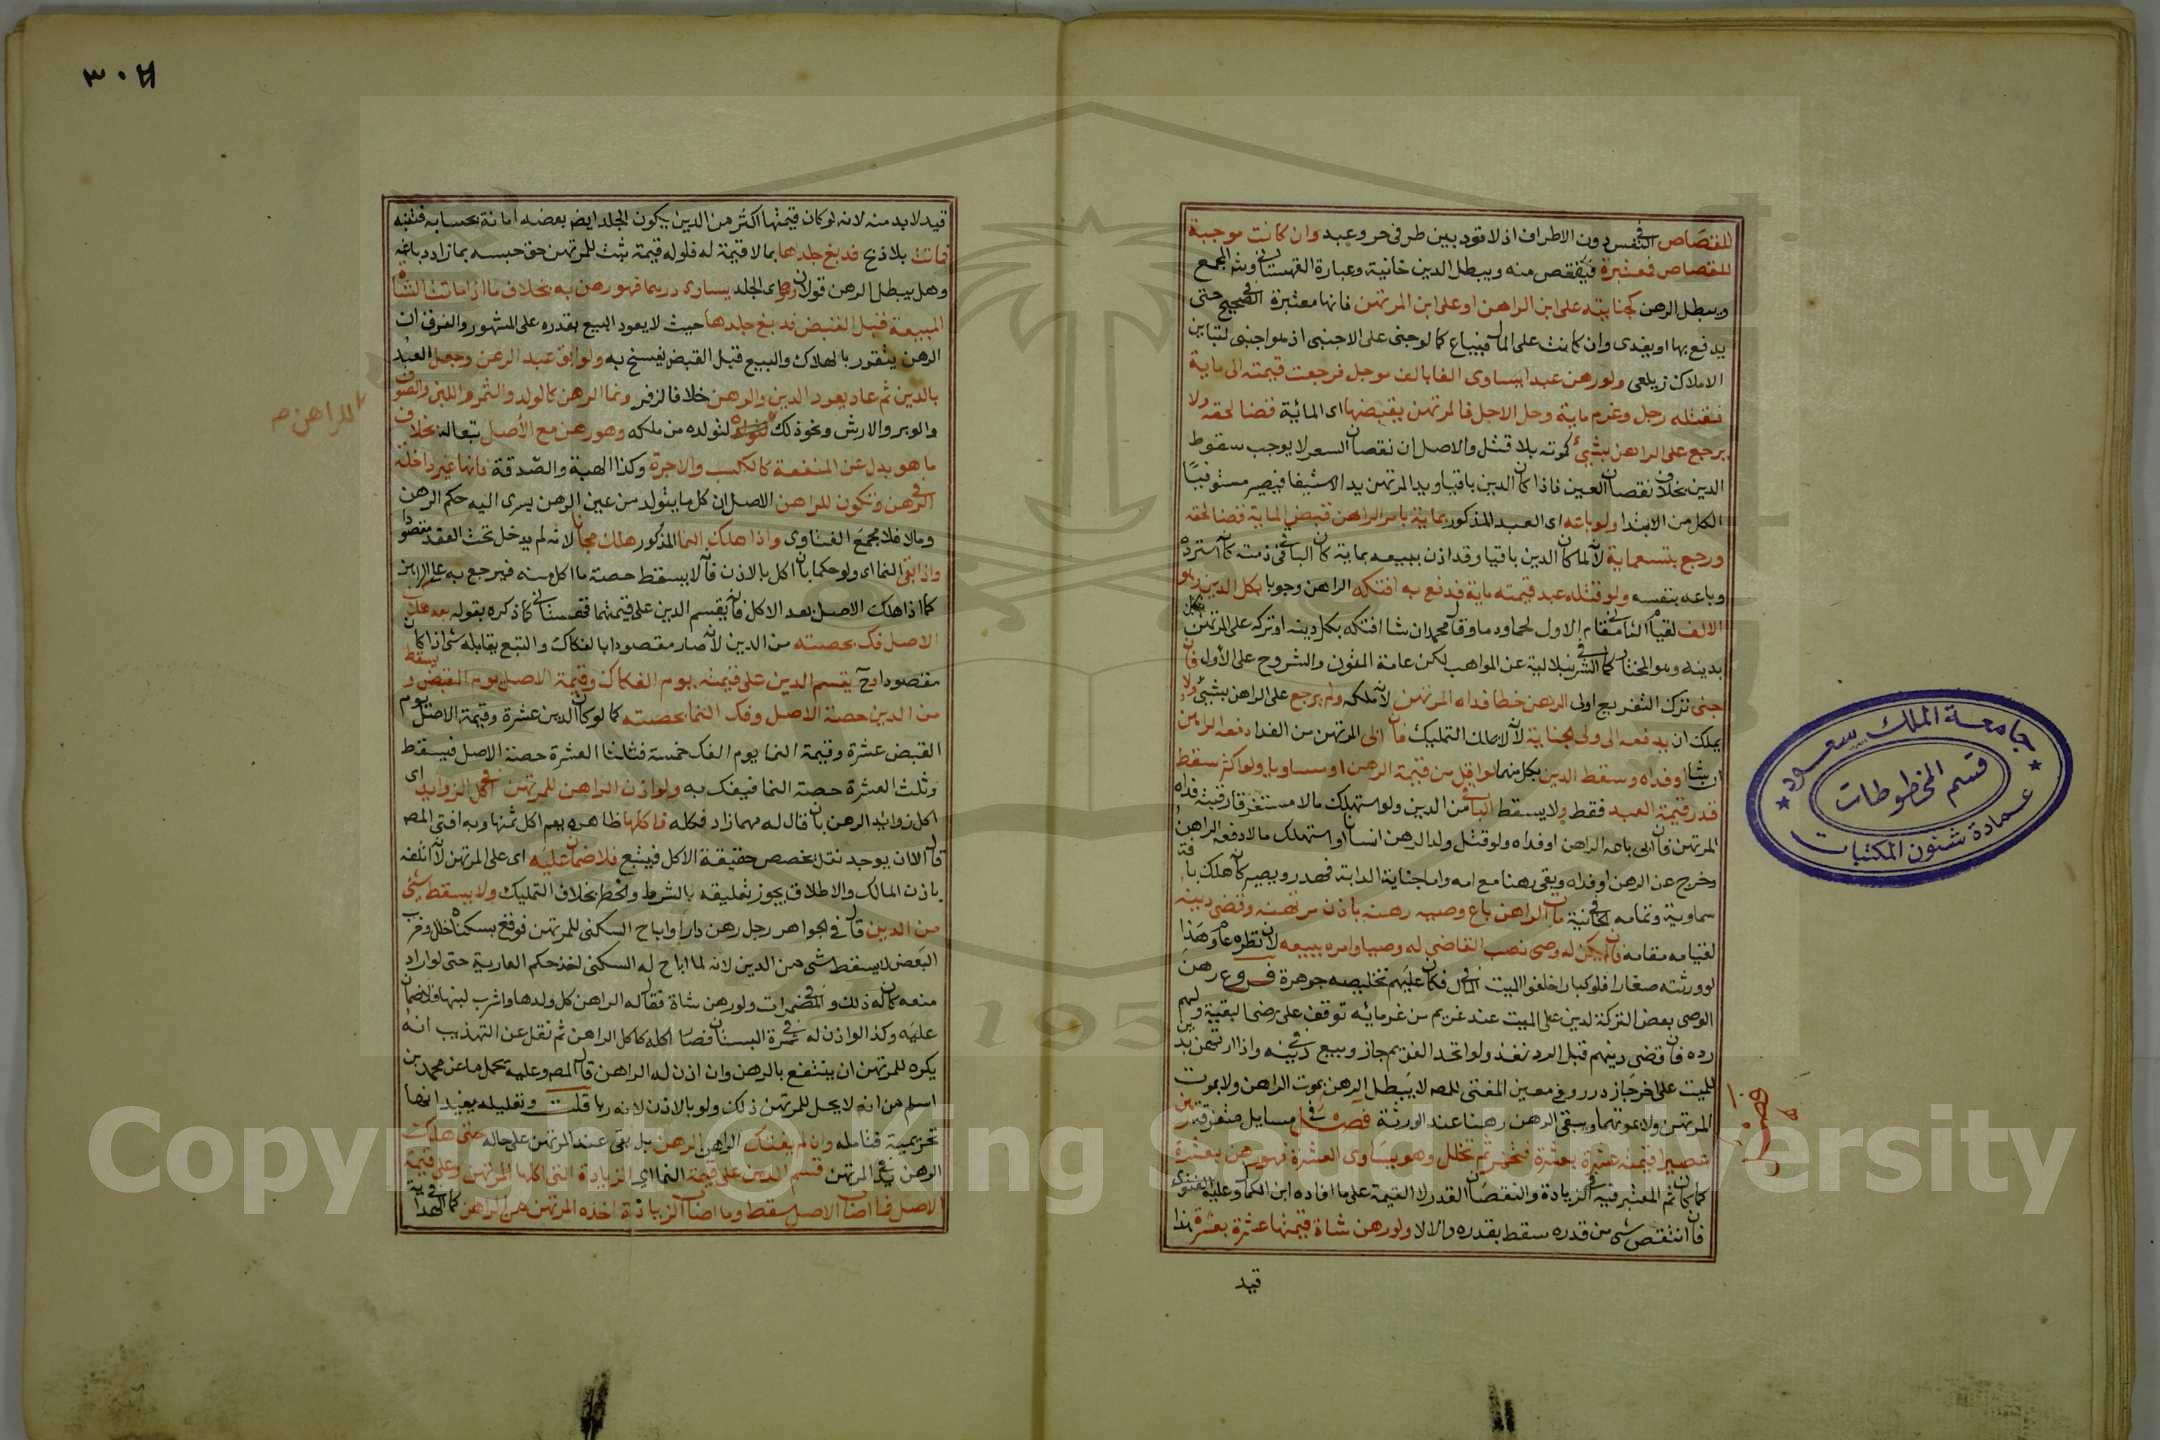 للقصاص في النفس دون الاطراف اذ لا قود بين طرفي حر وعبد وان كانت موجبة
للقصاص فمعتبرة فيقتص منه ويبطل الدين خانية وعبارة القهستاني وشرح المجمع
ويبطل الرهن كجنايته على ابن الراهن او على ابن المرتهن فانها معتبرة في الصحيح حتى
يدفع بها او يفدى وان كانت على المال فيباع كما لو جنى على الاجنبي اذ هو اجنبي لتباين
الاملاك زيلعي ولو رهن عبدا يساوى الفا بالف موجل فرجعت قيمته الى ماية
فقتله رجل وغرم ماية وحل الاجل فالمرتهن يقبضها اى المائية قضا لحقه ولا
يرجع على الراهن بشئ كموته بلا قتل والاصل ان نقصان السعر لا يوجب سقوط
الدين بخلاف نقصان العين فاذا كان الدين باقيا ويد المرتهن يد الاستيفا فيصير مستوفيا
الكل من الابتدا ولو باعه اى العبد المذكور بماية بامر الراهن قبض الماية قضا لحقه
ورجع بتسعماية لانه لما كان الدين باقيا وقد اذن ببيعه بماية كان الباقي في ذمته كأنه استرده
وباعه بنفسه ولو قتله عبد قيمته ماية فدفع به افتكه الراهن وجوبا بكل الدين وهو
الالف لقيام الثاني مقام الاول لحما ودما وقال محمد ان شا افتكه بكل دينه او تركه على المرتهن
بدينه وهو المختار كما في الشرنبلالية عن المواهب لكن عامة المتون والشروح على الأول فان
جنى ترك التفريع اولى الرهن خطا فداه المرتهن لانه ملكه ولم يرجع على الراهن بشئ ولا
يملك ان يدفعه الى ولى الجناية لانه لا يملك التمليك فان ابى المرتهن من الفدا دفعه الراهن
ان شا او فداه وسقط الدين بكل منهما لو اقل من قيمة الرهن او مساويا ولو اكثر سقط
قدر قيمة العبد فقط ولا يسقط الباقي من الدين ولو استهلك مالا مستغرقا رقبته فداه
المرتهن فان ابى باعه الراهن او فداه ولو قتل ولد الرهن انسانا او استهلك مالا دفعه الراهن
وخرج عن الرهن او فداه وبقى رهنا مع امه واما جناية الدابة فهدر ويصير كانه هلك بافة
سماوية وتمامه في الخانية مات الراهن باع وصيه رهنه باذن مرتهنه وقضى دينه
لقيامه مقامه فان لم يكن له وصى نصب القاضى له وصيا وامره ببيعه لان نظره عام وهذا
لو ورثته صغارا فلو كبارا خلفوا الميت في المال فكان عليهم تخليصه جوهرة فروع رهن
الوصى بعض التركة لدين على الميت عند غريم من غرمائه توقف على رضى البقية ولهم
رده فان قضى دينهم قبل الرد نفذ ولو اتحد الغريم جاز وبيع في دينه واذا ارتهن بدين
للميت على اخر جاز درر وفي معين المفتى للمص لا يبطل الرهن بموت الراهن ولا بموت
المرتهن ولا بموتهما ويبقى الرهن رهنا عند الورثة فصل في مسايل متفرقة رهن
عصيرا قيمته عشرة بعشرة فتخمر ثم تخلل وهو يساوى العشرة فهو رهن بعشرة
كما كان ثم المعتبر فيه في الزيادة والنقصان القدر لا القيمة على ما افاده ابن الكمال وعليه الفتوى
فان انتقص شئ من قدره سقط بقدره والا لا ولو رهن شاة قيمتها عشرة بعشرة هذا
قيد
فصل
جامعة الملك سعود
قسم المخطوطات
عمادة شئون المكتبات
قيد لابد منه لانه لو كان قيمتها اكثر من الدين يكون الجلد ايض بعضه امانة بحسابه فتنبه
فماتت بلا ذبح فدبغ جلدها بما لا قيمة له فلو له قيمة ثبت للمرتهن حق حبسه بما زاد دباغه
وهل يبطل الرهن قولان وهو اى الجلد يساوى درهما فهو رهن به بخلاف ما اذا ماتت الشاة
المبيعة قبل القبض فدبغ جلدها حيث لا يعود البيع بقدره على المشهور والفرق ان
الرهن يتقرر بالهلاك والبيع قبل القبض يفسخ به ولو ابق عبد الرهن وجعل العبد
بالدين ثم عاد يعود الدين والرهن خلافا لزفر ونما الرهن كالولد والثمر واللبن والصوف
والوبر والارش ونحو ذلك لتولده من ملكه وهو رهن مع الأصل تبعا له بخلاف
ما هو بدل عن المنفعة كالكسب والاجرة وكذا الهبة والصدقة فانها غير داخلة
في الرهن وتكون للراهن الاصل ان كل ما يتولد من عين الرهن يسرى اليه حكم الرهن
وما لا فلا مجمع الفتاوى واذا هلك النما المذكور هلك مجانا لانه لم يدخل تحت العقد مقصودا
واذا بقى النما اى ولو حكما بان اكل بالاذن فانه لا يسقط حصة ما اكل منه فيرجع به على الراهن
كما اذا هلك الاصل بعد الاكل فانه يقسم الدين على قيمتهما قهستاني كما ذكره بقوله بعد هلاك
الاصل فك بحصته من الدين لانه صار مقصودا بالفكاك والتبع يقابله شئ اذا كان
مقصودا وح يقسم الدين على قيمته يوم الفكاك وقيمة الاصل يوم القبض ويسقط
من الدين حصة الاصل وفك النما بحصته كما لو كان الدين عشرة وقيمة الاصل يوم
القبض عشرة وقيمة النما يوم الفك خمسة فثلثا العشرة حصة الاصل فيسقط
وثلث العشرة حصة النما فيفك به ولو اذن الراهن للمرتهن في اكل الزوايد اى
اكل زوايد الرهن بان قال له مهما زاد فكله فاكلها ظاهره يعم اكل ثمنها وبه افتى المص
قال الا ان يوجد نقل بخصص حقيقة الاكل فيتبع فلا ضمان عليه اى على المرتهن لانه اتلفه
باذن المالك والاطلاق يجوز تعليقه بالشرط والخطر بخلاف التمليك ولا يسقط شئ
من الدين قال في الجواهر رجل رهن دارا واباح السكنى للمرتهن فوقع بسكناه خلل وخرب
البعض لا يسقط شى من الدين لانه لما اباح له السكنى اخذ حكم العارية حتى لو اراد
منعه كان له ذلك وفي المضمرات ولو رهن شاة فقال له الراهن كل ولدها واشرب لبنها فلا ضمان
عليه وكذا لو اذن له في ثمرة البستان فصار اكله كاكل الراهن ثم نقل عن التهذيب انه
يكره للمرتهن ان ينتفع بالرهن وان اذن له الراهن قال المص وعليه يحمل ما عن محمد بن
اسلم من انه لا يحل للمرتهن ذلك ولو بالاذن لانه ربا قلت وتعليله يفيد انها
تحريمية فتامله وان لم يفتك الراهن الرهن بل بقى عند المرتهن على حاله حتى هلك
الرهن في يد المرتهن قسم الدين على قيمة النما اى الزيادة التى اكلها المرتهن وعلى قيمة
الاصل فما اصاب الاصل سقط وما اصاب الزيادة اخذه المرتهن من الراهن كما في الهداية
للراهن صح
Copyright © King Saud University
195